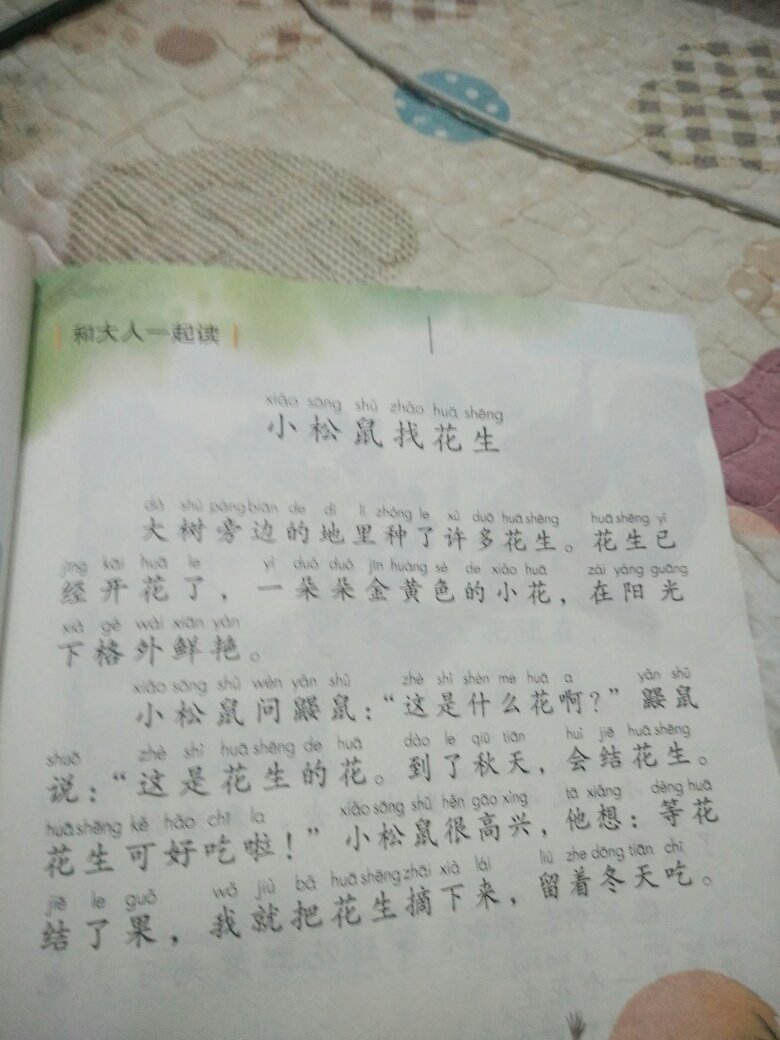 和大人一起读
xiǎo sōng shǔ zhǎo huā shēng
小松鼠找花生
dà shù páng biān de dì lǐ zhòng le xǔ duō huā shēng huā shēng yǐ
大树旁边的地里种了许多花生。花生已
jīng kāi huā le yì duǒ duǒ jīn huáng sè de xiǎo huā zài yáng guāng
经开花了，一朵朵金黄色的小花，在阳光
xià gé wài xiān yàn
下格外鲜艳。
xiǎo sōng shǔ wèn yǎn shǔ zhè shì shén me huā a yǎn shǔ
小松鼠问鼹鼠：“这是什么花啊？”鼹鼠
shuō zhè shì huā shēng de huā dào le qiū tiān huì jiē huā shēng
说：“这是花生的花。到了秋天，会结花生。
huā shēng kě hǎo chī la xiǎo sōng shǔ hěn gāo xìng tā xiǎng děng huā
花生可好吃啦！”小松鼠很高兴，他想：等花
jiē le guǒ wǒ jiù bǎ huā shēng zhāi xià lái liú zhe dōng tiān chī
结了果，我就把花生摘下来，留着冬天吃。